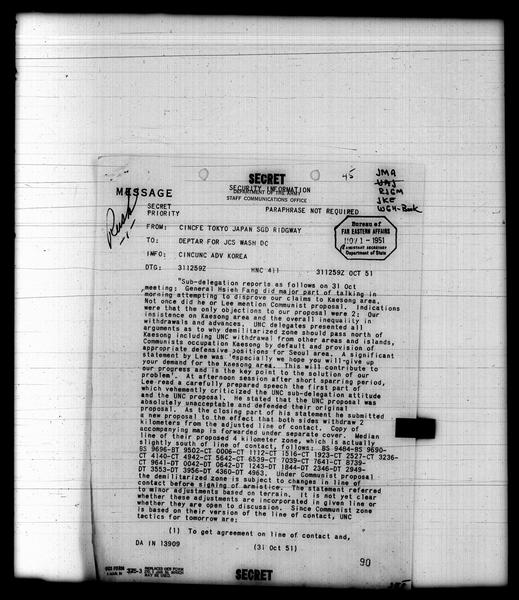 SECRET
SECURITY INFORMATION
DEPARTMENT OF THE ARMY
STAFF COMMUNICATIONS OFFICE
45
JMA
UAJ
RJGM
JKE
WGH-Book
MESSAGE
SECRET
PRIORITY
PARAPHRASE NOT REQUIRED
Rush
-1-
FROM: CINCFE TOKYO JAPAN SGD RIDGWAY
TO: DEPTAR FOR JCS WASH DC
INFO: CINCUNC ADV KOREA
Bureau of
FAR EASTERN AFFAIRS
NOV 1 - 1951
ASSISTANT SECRETARY
Department of State
DTG: 311259Z HNC 411 311259Z OCT 51
"Sub-delegation reports as follows on 31 Oct
meeting: General Hsieh Fang did major part of talking in
morning attempting to disprove our claims to Kaesong area.
Not once did he or Lee mention Communist proposal. Indications
were that the only objections to our proposal were 2: Our
insistence on Kaesong area and the overall inequality in
withdrawals and advances. UNC delegates presented all
arguments as to why demilitarized zone should pass north of
Kaesong including UNC withdrawal from other areas and islands,
Communists occupation Kaesong by default and provision of
appropriate defensive positions for Seoul area. A significant
statement by Lee was 'especially we hope you will give up
your demand for the Kaesong area. This will contribute to
our progress and is the key point to the solution of our
problem'. At afternoon session after short sparring period,
Lee read a carefully prepared speech the first part of
which vehemently criticized the UNC sub-delegation attitude
and the UNC proposal. He stated that the UNC proposal was
absolutely unacceptable and defended their original
proposal. As the closing part of his statement he submitted
a new proposal to the effect that both sides withdraw 2
kilometers from the adjusted line of contact. Copy of
accompanying map is forwarded under separate cover. Median
line of their proposed 4 kilometer zone, which is actually
slightly south of line of contact, follows: BS 9484-BS 9690-
BS 9696-BT 9502-CT 0006-CT 1112-CT 1516-CT 1923-CT 2527-CT 3236-
CT 4140-CT 4942-CT 5642-CT 6539-CT 7039-CT 7641-CT 8739-
CT 9641-DT 0042-DT 0642-DT 1243-DT 1844-DT 2346-DT 2949-
DT 3553-DT 3956-DT 4360-DT 4963. Under Communist proposal
the demilitarized zone is subject to changes in line of
contact before signing of armistice. The statement referred
to minor adjustments based on terrain. It is not yet clear
whether these adjustments are incorporated in given line or
whether they are open to discussion. Since Communist zone
is based on their version of the line of contact, UNC
tactics for tomorrow are:
(1) To get agreement on line of contact and,
DA IN 13909 (31 Oct 51)
90
375-3
SECRET